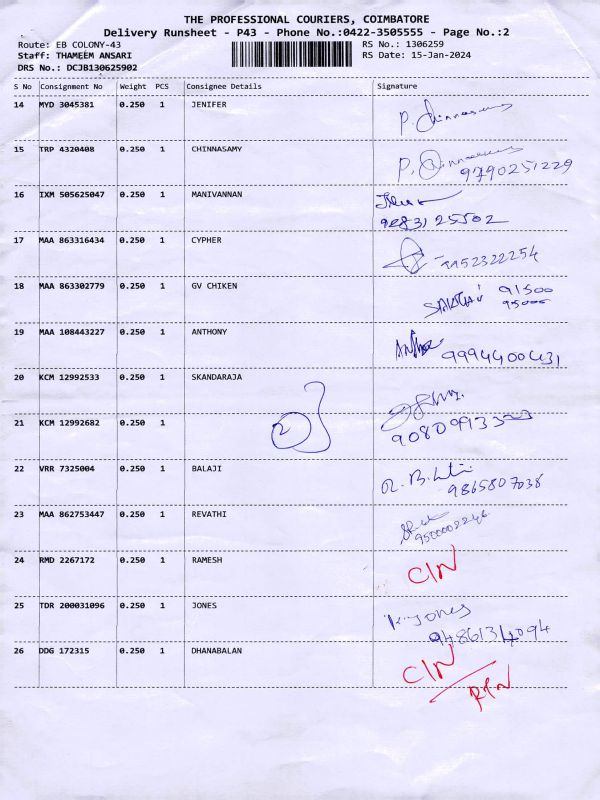 THE PROFESSIONAL COURIERS, COIMBATORE
Delivery Runsheet - P43 - Phone No.:0422-3505555 - Page No.:2
Route: EB COLONY-43 RS No.: 1306259
Staff: THAMEEM ANSARI RS Date: 15-Jan-2024
DRS No.: DCJB130625902
S No Consignment No Weight PCS Consignee Details Signature
14 MYD 3045381 0.250 1 JENIFER P. Chinnasamy
15 TRP 4320408 0.250 1 CHINNASAMY P. Chinnasamy
9790251229
16 IXM 505625047 0.250 1 MANIVANNAN
9283125502
17 MAA 863316434 0.250 1 CYPHER 9952322254
18 MAA 863302779 0.250 1 GV CHIKEN 91500
95005
19 MAA 108443227 0.250 1 ANTHONY 9994400431
20 KCM 12992533 0.250 1 SKANDARAJA
21 KCM 12992682 0.250 1 2
22 VRR 7325004 0.250 1 BALAJI
9865807038
23 MAA 862753447 0.250 1 REVATHI
9500002246
24 RMD 2267172 0.250 1 RAMESH C/N
25 TDR 200031096 0.250 1 JONES K. Jones
9486134094
26 DDG 172315 0.250 1 DHANABALAN C/N
RTN